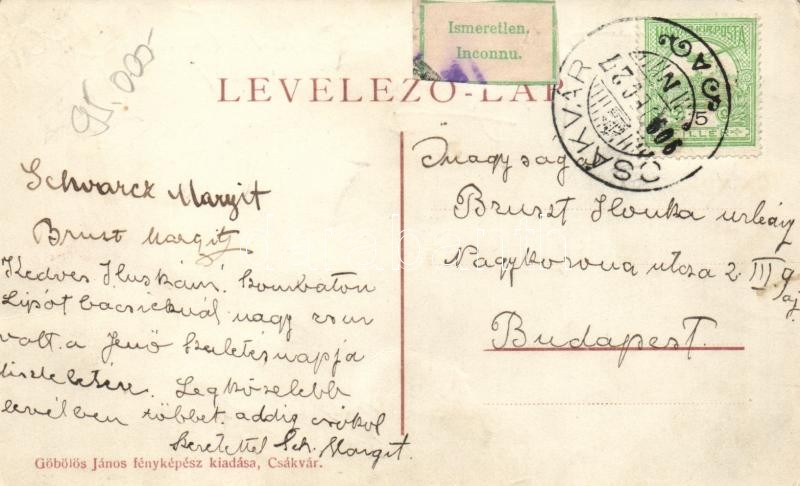 Ismeretlen.
Inconnu.
MAGYAR KIR. POSTA
5
CSÁKVÁR
909
27
95.000-
LEVELEZŐ-LAP
Schwarcz Margit
Brust Margit
Kedves Iluskám! Szombaton
Lipót bácsieknál nagy zsur
volt. a Jenő születésnapja
tiszteletére. Legközelebb
levélben többet. addig csókol
szeretettel Sch. Margit.
Göbölös János fényképész kiadása, Csákvár.
Őnagysága
Bruszt Ilonka urleány
Nagykorona utcza 2. III 9
aj.
Budapest.